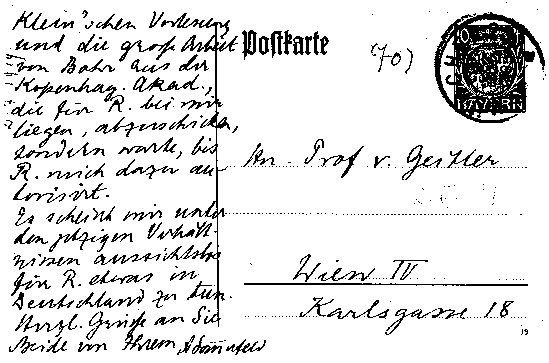 Klein'schen Vorlesung
und die große Arbeit
von Bohr aus der
Kopenhag. Akad.,
die für R. bei mir
liegen, abzuschicken,
sondern warte, bis
R. mich dazu au-
torisirt.
Es scheint mir unter
den jetzigen Verhält-
nissen aussichtslos
für R. etwas in
Deutschland zu tun.
Herzl. Grüße an Sie
Beide von Ihrem ASommerfeld
Postkarte
70)
BAYERN
Hn. Prof v. Geitler
Wien IV
Karlsgasse 18